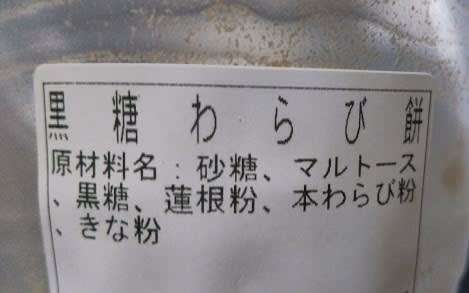 黒糖わらび餅
原材料名：砂糖、マルトース
、黒糖、蓮根粉、本わらび粉
、きな粉